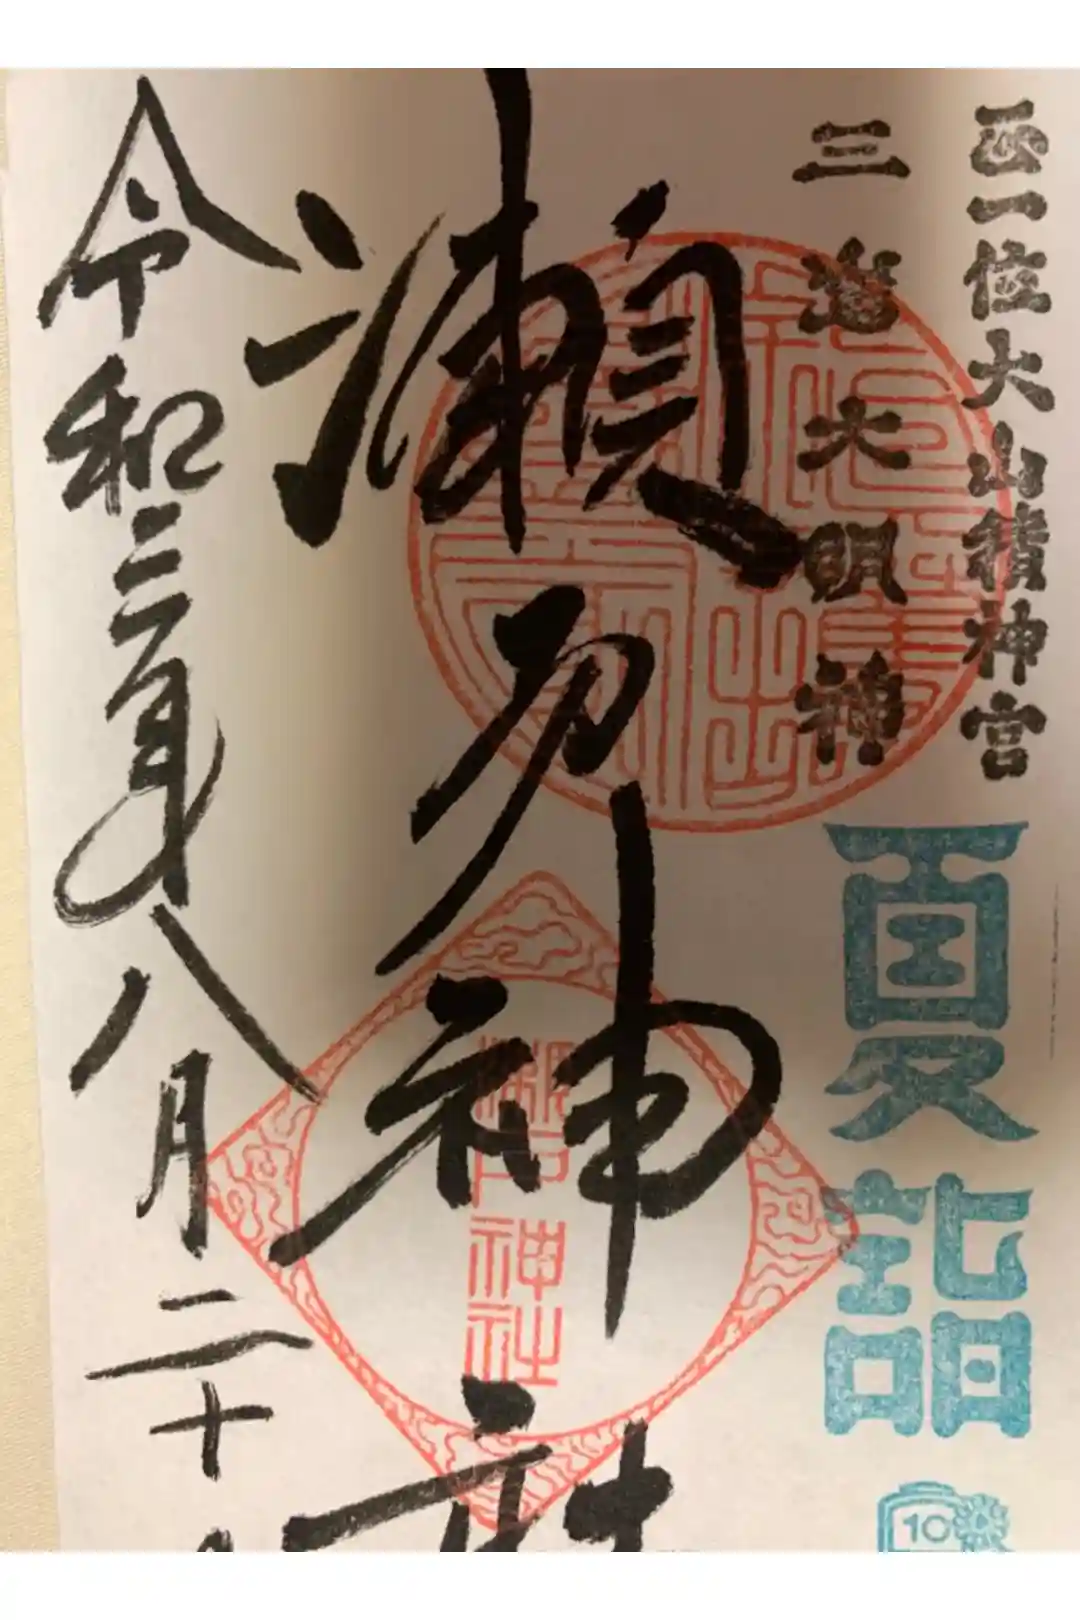 正一位大山積神宮
三 大明神
夏詣
10
瀬戸神社
瀬戸神社
令和三年八月二十